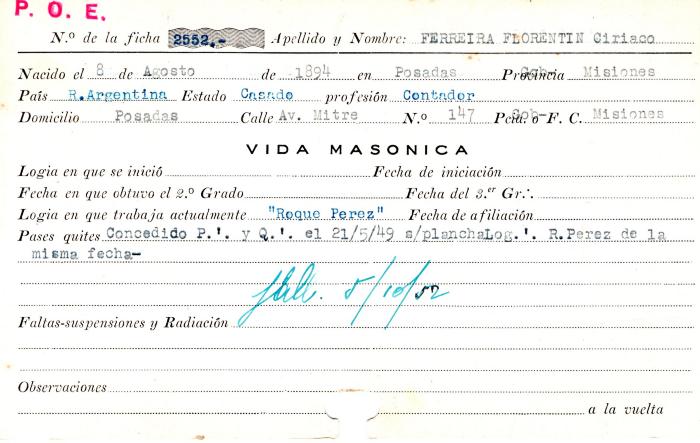 P. O. E.
N.º de la ficha 2552,- Apellido y Nombre: FERREIRA FLORENTIN Ciriaco
Nacido el 8 de Agosto de 1894 en Posadas Provincia Gob. Misiones
País R.Argentina Estado Casado profesión Contador
Domicilio Posadas Calle Av. Mitre N.º 147 Pcia. o F. C. Gob- Misiones
VIDA MASONICA
Logia en que se inició Fecha de iniciación
Fecha en que obtuvo el 2.º Grado Fecha del 3.er Gr∴
Logia en que trabaja actualmente "Roque Perez" Fecha de afiliación
Pases quites Concedido P.'. y Q.'. el 21/5/49 s/planchaLog.'. R.Perez de la
misma fecha-
5/10/52
Faltas-suspensiones y Radiación
Observaciones
a la vuelta